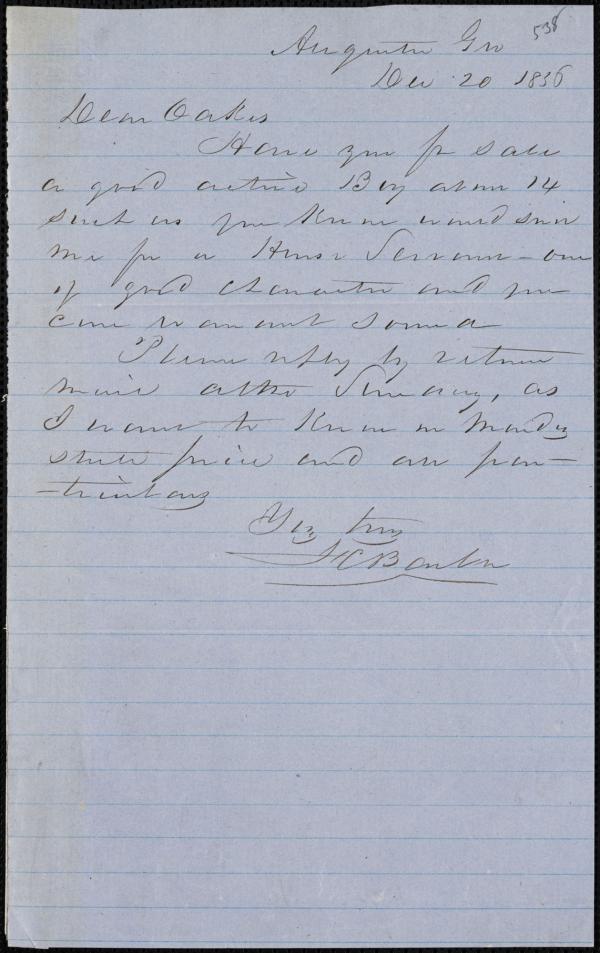 538
Augusta Ga
Dec 20 1856
Dear Oakes
Have you for sale
a good active Boy about 14
such as you know would suit
me for a House Servant - one
of good character and you
can warrant sound
Please reply by return
mail Sunday, as
I want to know on Monday
state price and all par-
-ticulars
Yrs truly
Barber